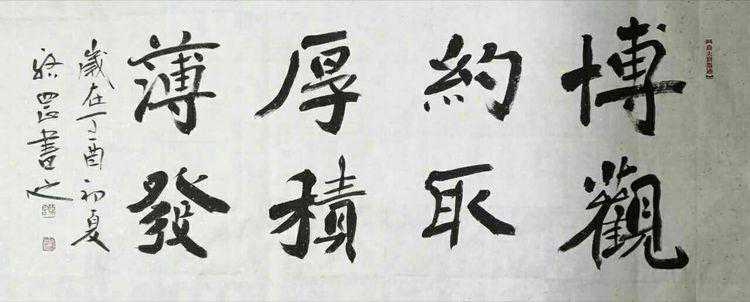 博觀
約取
厚積
薄發
歲在丁酉初夏
書之